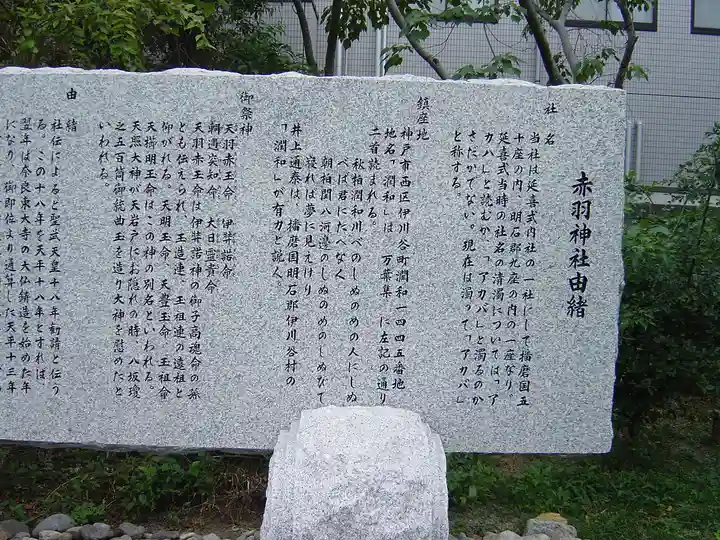 赤羽神社由緒
社名
当社は延喜式内社の一社にして播磨国五
十座の内、明石郡九座の内の一座なり。
延喜式当時の社名の清濁については「ア
カハ」と読むか、「アカバ」と濁るのか
さだかでない。現在は濁って「アカバ」
と称する。
鎮座地
神戸市西区伊川谷町潤和一四四五番地
地名「潤和」は「万葉集」に左記の通り
二首読まれる。
秋柏潤和川べのしぬのめの人にしぬ
べば君にたへなく
朝柏閏八河邊のしぬのめのしぬびて
寝れば夢に見えけり
井上通泰は、播磨国明石郡伊川谷村の
「潤和」が有力と読んだ。
御祭神
天羽赤玉命 伊弉諾命
軻遇突知命 大日霊貴命
天羽赤玉命は伊弉諾神の御子高魂命の孫
とも伝えられ、玉造連、玉祖連の遠祖と
仰がれる。天明玉命、天豊玉命、玉祖命
天櫛明玉命はこの神の別名といわれる。
天照大神が天岩戸にお隠れの時、八坂瓊
之五百箇御統曲玉を造り大神を慰めたと
いわれる。
由緒
社伝によると聖武天皇十八年勧請と伝う
る。この十八年を天平十八年とすれば
翌年は奈良東大寺の大仏鋳造を始めた年
になり、御即位より通算した天平十三年